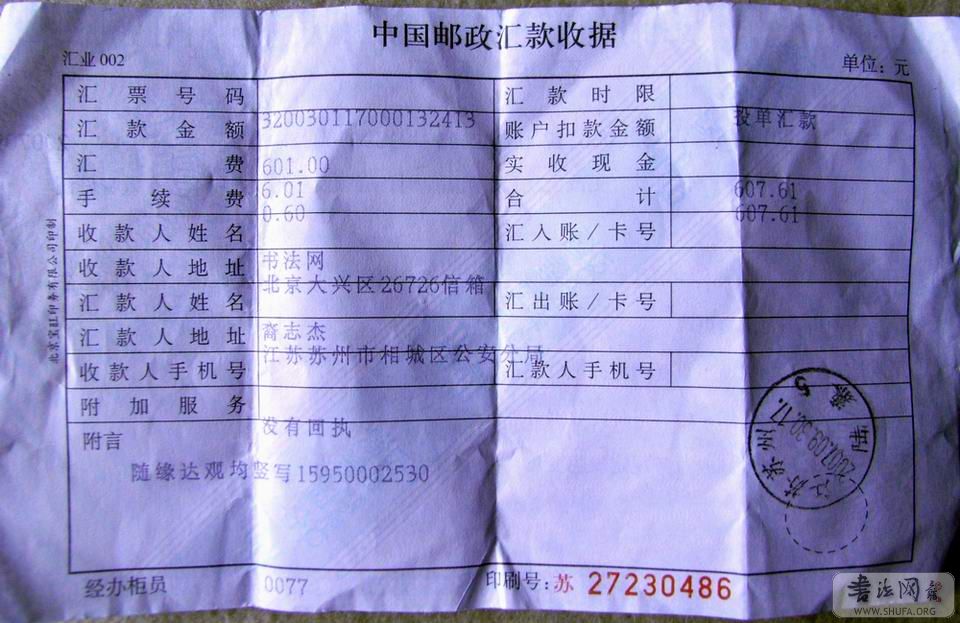 中国邮政汇款收据
汇业 002 单位：元
汇票号码 320030117000132413 汇款时限 投单汇款
汇款金额 601.00 账户扣款金额
汇费 6.01 实收现金 607.61
手续费 0.60 合计 607.61
收款人姓名 书法网 汇入账/卡号
收款人地址 北京大兴区26726信箱
汇款人姓名 裔志杰 汇出账/卡号
汇款人地址 江苏苏州市相城区公安分局
收款人手机号 汇款人手机号
附加服务 发有回执
附言
随缘达观均竖写15950002530
经办柜员 0077 印刷号：苏 27230486
江苏苏州
2007.09.30.17
5
书法网
WWW.SHUFA.ORG